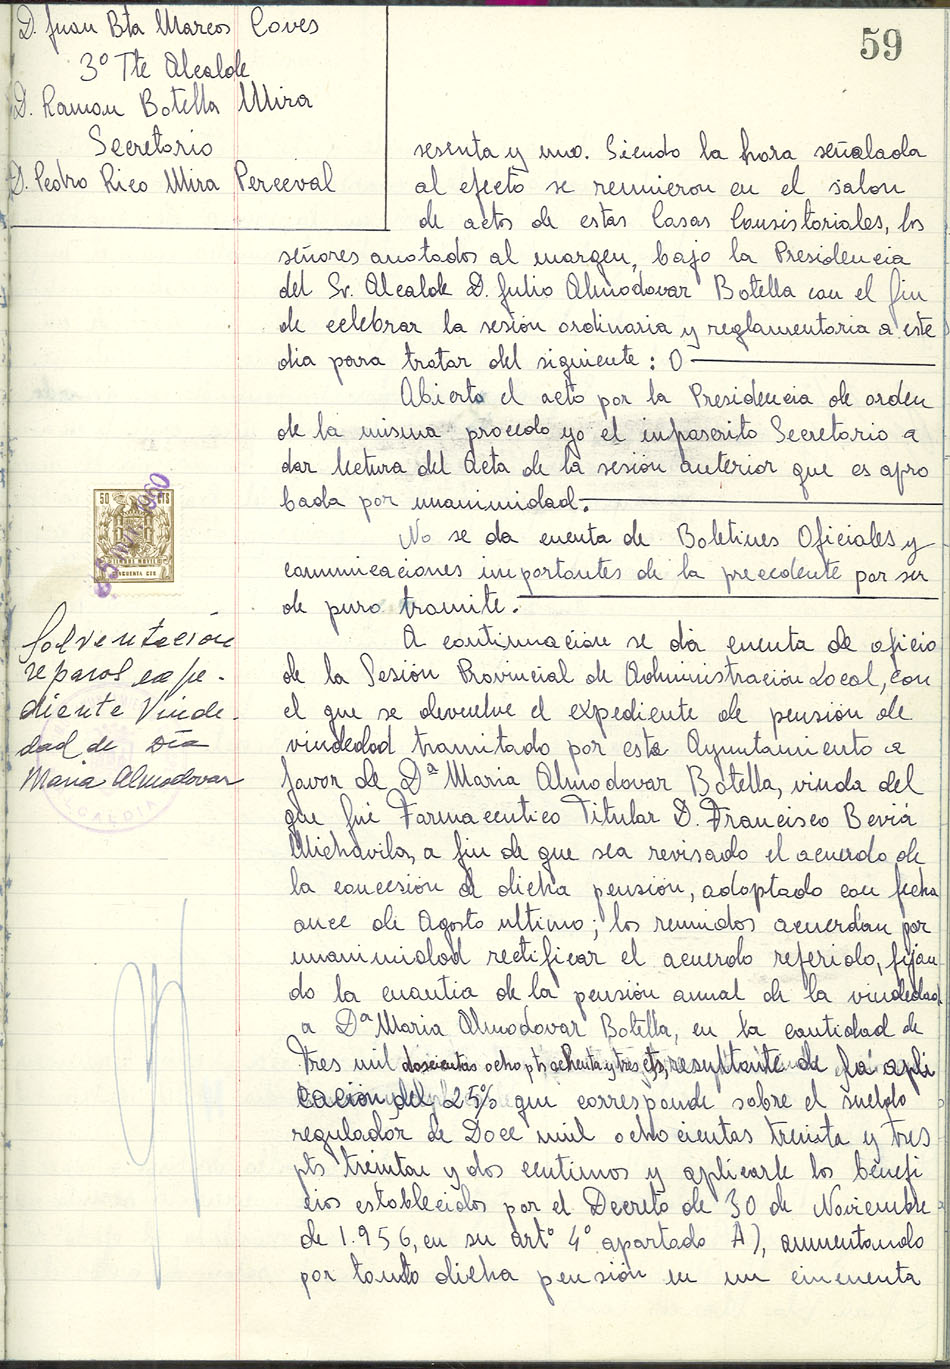 D. Juan Bta Marcos Coves
3º Tte Alcalde
D. Ramon Botella Mira
Secretorio
D. Pedro Rico Mira Perceval
59
sesenta y uno. Siendo la hora señalada
al efecto se reunieron en el salon
de actos de estas Casas Consistoriales, los
señores anotados al margen, bajo la Presidencia
del Sr. Alcalde D. Julio Almodovar Botella con el fin
de celebrar la sesión ordinaria y reglamentaria a este
dia para tratar del siguiente: O
Abierto el acto por la Presidencia de orden
de la misma procedo yo el infrascrito Secretario a
dar lectura del acta de la sesión anterior que es apro
bada por unanimidad.
No se da cuenta de Boletines Oficiales y
comunicaciones importantes de la precedente por ser
de puro tramite.
50 CTS
CINCUENTA CTS
1960
Solventación
reparos expe-
diente Viude-
dad de Dña
Maria Almodovar
ALCALDIA
A continuación se da cuenta de oficio
de la Sesión Provincial de Administración Local, con
el que se devuelve el expediente de pensión de
viudedad tramitado por este Ayuntamiento a
favor de Dª Maria Almodovar Botella, viuda del
que fué Farmaceutico Titular D. Francisco Beviá
Michavila, a fin de que sea revisado el acuerdo de
la concesión de dicha pensión, adoptado con fecha
once de Agosto ultimo; los reunidos acuerdan por
unanimidad rectificar el acuerdo referido, fijan-
do la cuantia de la pensión anual de la viudedad
a Dª Maria Almodovar Botella, en la cantidad de
tres mil doscientas ocho pts ochenta y tres cts, resultante de la apli
cación del 25% que corresponde sobre el sueldo
regulador de Doce mil ochocientas treinta y tres
pts treinta y dos centimos y aplicarle los benefi
cios establecidos por el Decreto de 30 de Noviembre
de 1.956, en su artº 4º apartado A), aumentando
por tanto dicha pensión en un cincuenta